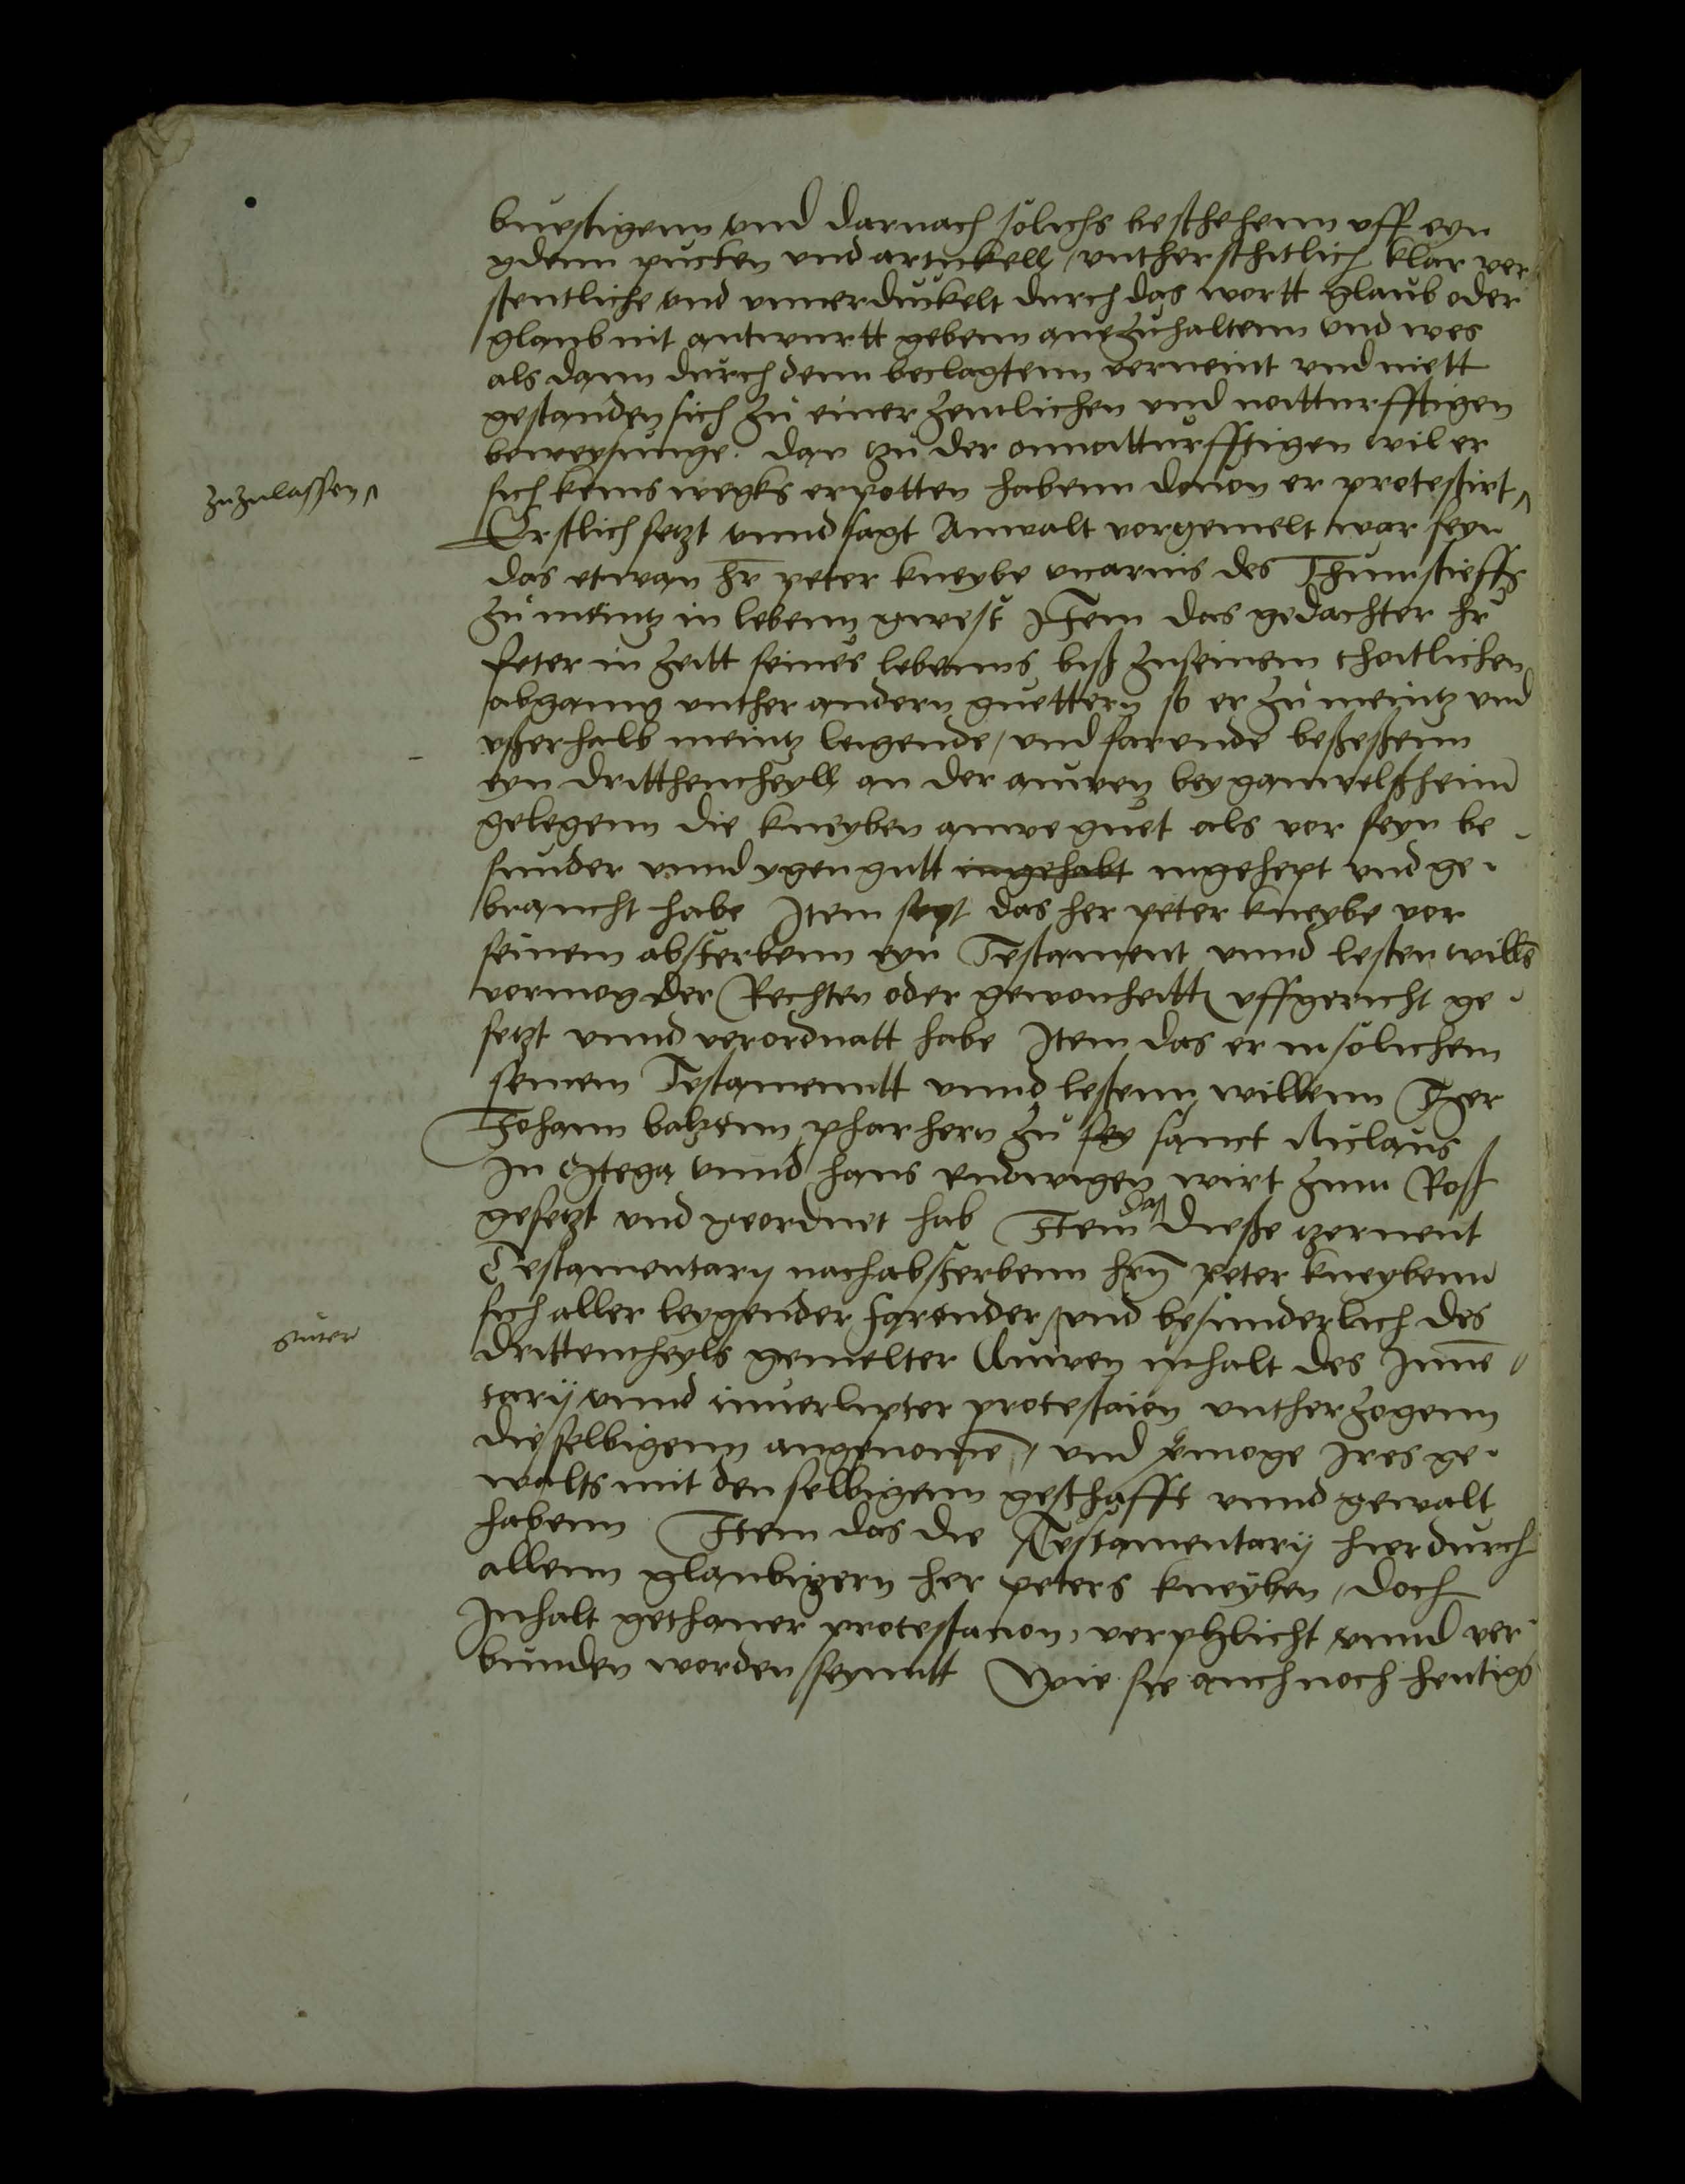 bevestigenn vnd darnach solichs beschehenn vff eyn
ydenn puncten vnd artickell / vntherschitlich klar ver
stentliche vnd vnuerduckelt durch das wortt glaub oder
glaub nit antwurtt gebenn anezuhaltenn vnd wes
als dann durch denn beclagtenn verneint vnd niett
gestanden sich zu einer zemlichen vnd notturfftigen
beweysunge. dan tzu der onnotturfftigen wil er
zuzulassen
sich keins wegks erpotten habenn douon er protestirt
Erstlich setzt vnnd sagt Anwalt vorgemelt war seyn
das etwan hr peter kneybe vicarius des Thumstieffs
zu meintz in lebenn gwest Item das gedachter hr
peter in zeitt seines lebenns biß zu seinem thoitlichen
abgang vnther andern guettern so er zu meintz vnd
vßerhalb meintz leigende / vnd farende beßeßenn
eyn dritthentheyll an der auwen bey ganwelßheim
gelegenn die kneyben auwe gnet als vor seyn be
sunder vnnd ygen gutt ingehabt ingehept vnd ge
braucht habe Item sagt das her peter kneybe vor
seinem absterbenn eyn Testament vnnd lesten wille
vermog der Rechten oder gewonheitt vffgericht ge
setzt vnnd verordnatt habe Item das er in solichem
seinem Testamentt vnnd lestenn willenn Her
Johann baltzenn pharhern zu sey sanct Niclaus
In Itega vnnd hans endwigen wirt zum Roß
gesetzt vnd geordnet hab Item das dieße izernent
Testamentary nach absterbenn hern peter kneybenn
sich aller leygender farender / vnd besunderlich des
drittentheyls gemelter Auwen inhalt des Inue
tarij vnnd inuerlipter protestaion vntherzogenn
die selbigenn angenome / vnd vermoge Ires ge
walts mit den selbigenn geschafft vnnd gewalt
habenn Item das die Testamentarij hierdurch
allenn glaubigern her peters kneyben / doch
Inhalt gethaner protestacion verphlicht vnnd ver
bunden worden seyntt Wie sie auch noch heutigs